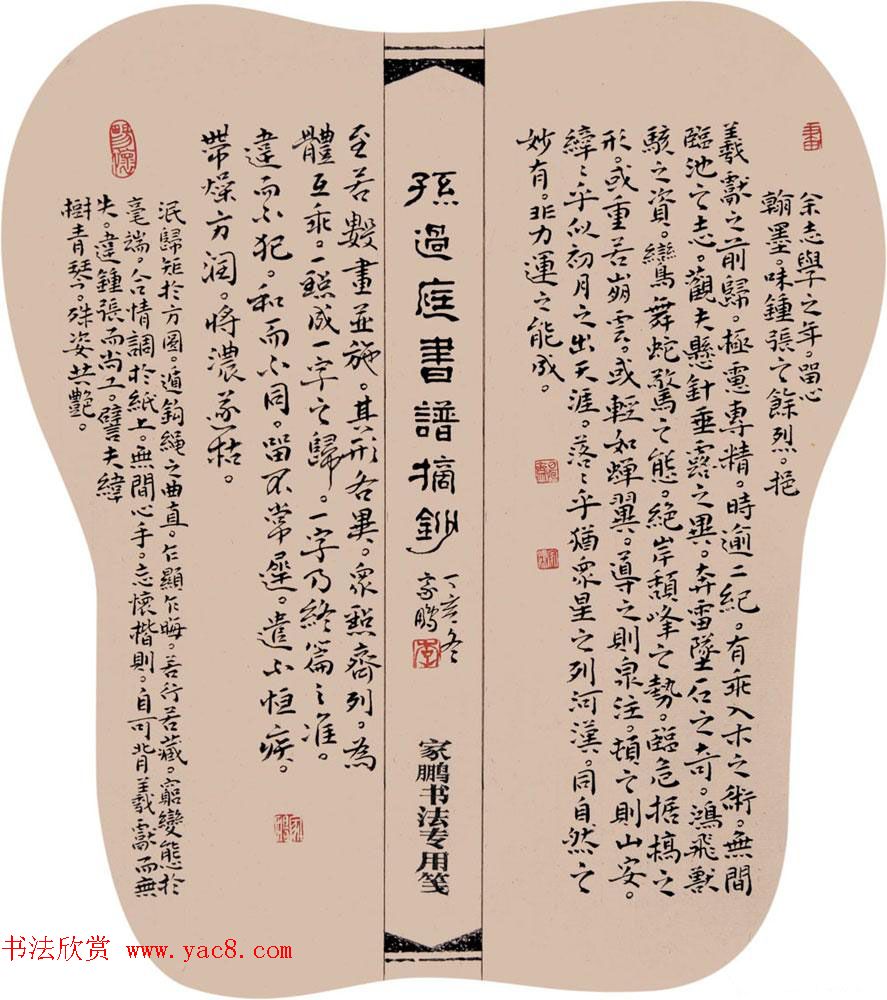 余志學之年。留心
翰墨。味鍾張之餘烈。挹
羲獻之前歸。極慮專精。時逾二紀。有乖入木之術。無間
臨池之志。觀夫懸針垂露之異。奔雷墜石之奇。鴻飛獸
駭之資。鸞舞蛇驚之態。絕岸頹峰之勢。臨危據槁之
形。或重若崩雲。或輕如蟬翼。導之則泉注。頓之則山安。
纖纖乎似初月之出天涯。落落乎猶眾星之列河漢。同自然之
妙有。非力運之能成。
孫過庭書譜摘鈔
丁亥冬
家鵬
家鵬书法专用笺
至若數畫並施。其形各異。眾點齊列。為
體互乖。一點成一字之歸。一字乃終篇之准。
違而不犯。和而不同。留不常遲。遣不恒疾。
帶燥方潤。將濃遂枯。
泯歸矩於方圓。遁鉤繩之曲直。乍顯乍晦。若行若藏。窮變態於
毫端。合情調於紙上。無間心手。忘懷楷則。自可背羲獻而無
失。違鍾張而尚工。譬夫絳
樹青琴。殊姿共艷。
书法欣赏 www.yac8.com